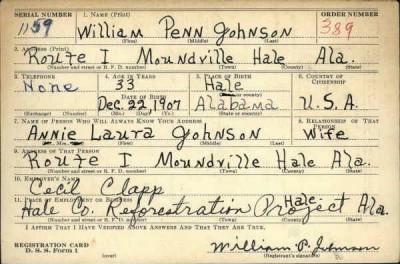 SERIAL NUMBER 1. NAME (Print) ORDER NUMBER
1159 William Penn Johnson 389
(First) (Middle) (Last)
2. ADDRESS (Print)
Route I Moundville Hale Ala.
(Number and street or R. F. D. number) (Town) (County) (State)
3. TELEPHONE 4. AGE IN YEARS 5. PLACE OF BIRTH 6. COUNTRY OF CITIZENSHIP
None 33 Hale
DATE OF BIRTH (Town or county)
Dec. 22, 1907 Alabama U.S.A.
(Exchange) (Number) (Mo.) (Day) (Yr.) (State or country)
7. NAME OF PERSON WHO WILL ALWAYS KNOW YOUR ADDRESS 8. RELATIONSHIP OF THAT PERSON
Annie Laura Johnson Wife
(Mr., Mrs., Miss) (First) (Middle) (Last)
9. ADDRESS OF THAT PERSON
Route I Moundville Hale Ala.
(Number and street or R. F. D. number) (Town) (County) (State)
10. EMPLOYER'S NAME
Cecil Clapp
11. PLACE OF EMPLOYMENT OR BUSINESS
Hale Co. Reforestration Project Hale. Ala.
(Number and street or R. F. D. number) (Town) (County) (State)
I AFFIRM THAT I HAVE VERIFIED ABOVE ANSWERS AND THAT THEY ARE TRUE.
REGISTRATION CARD
D. S. S. Form 1 (over) William P. Johnson
(Registrant's signature)